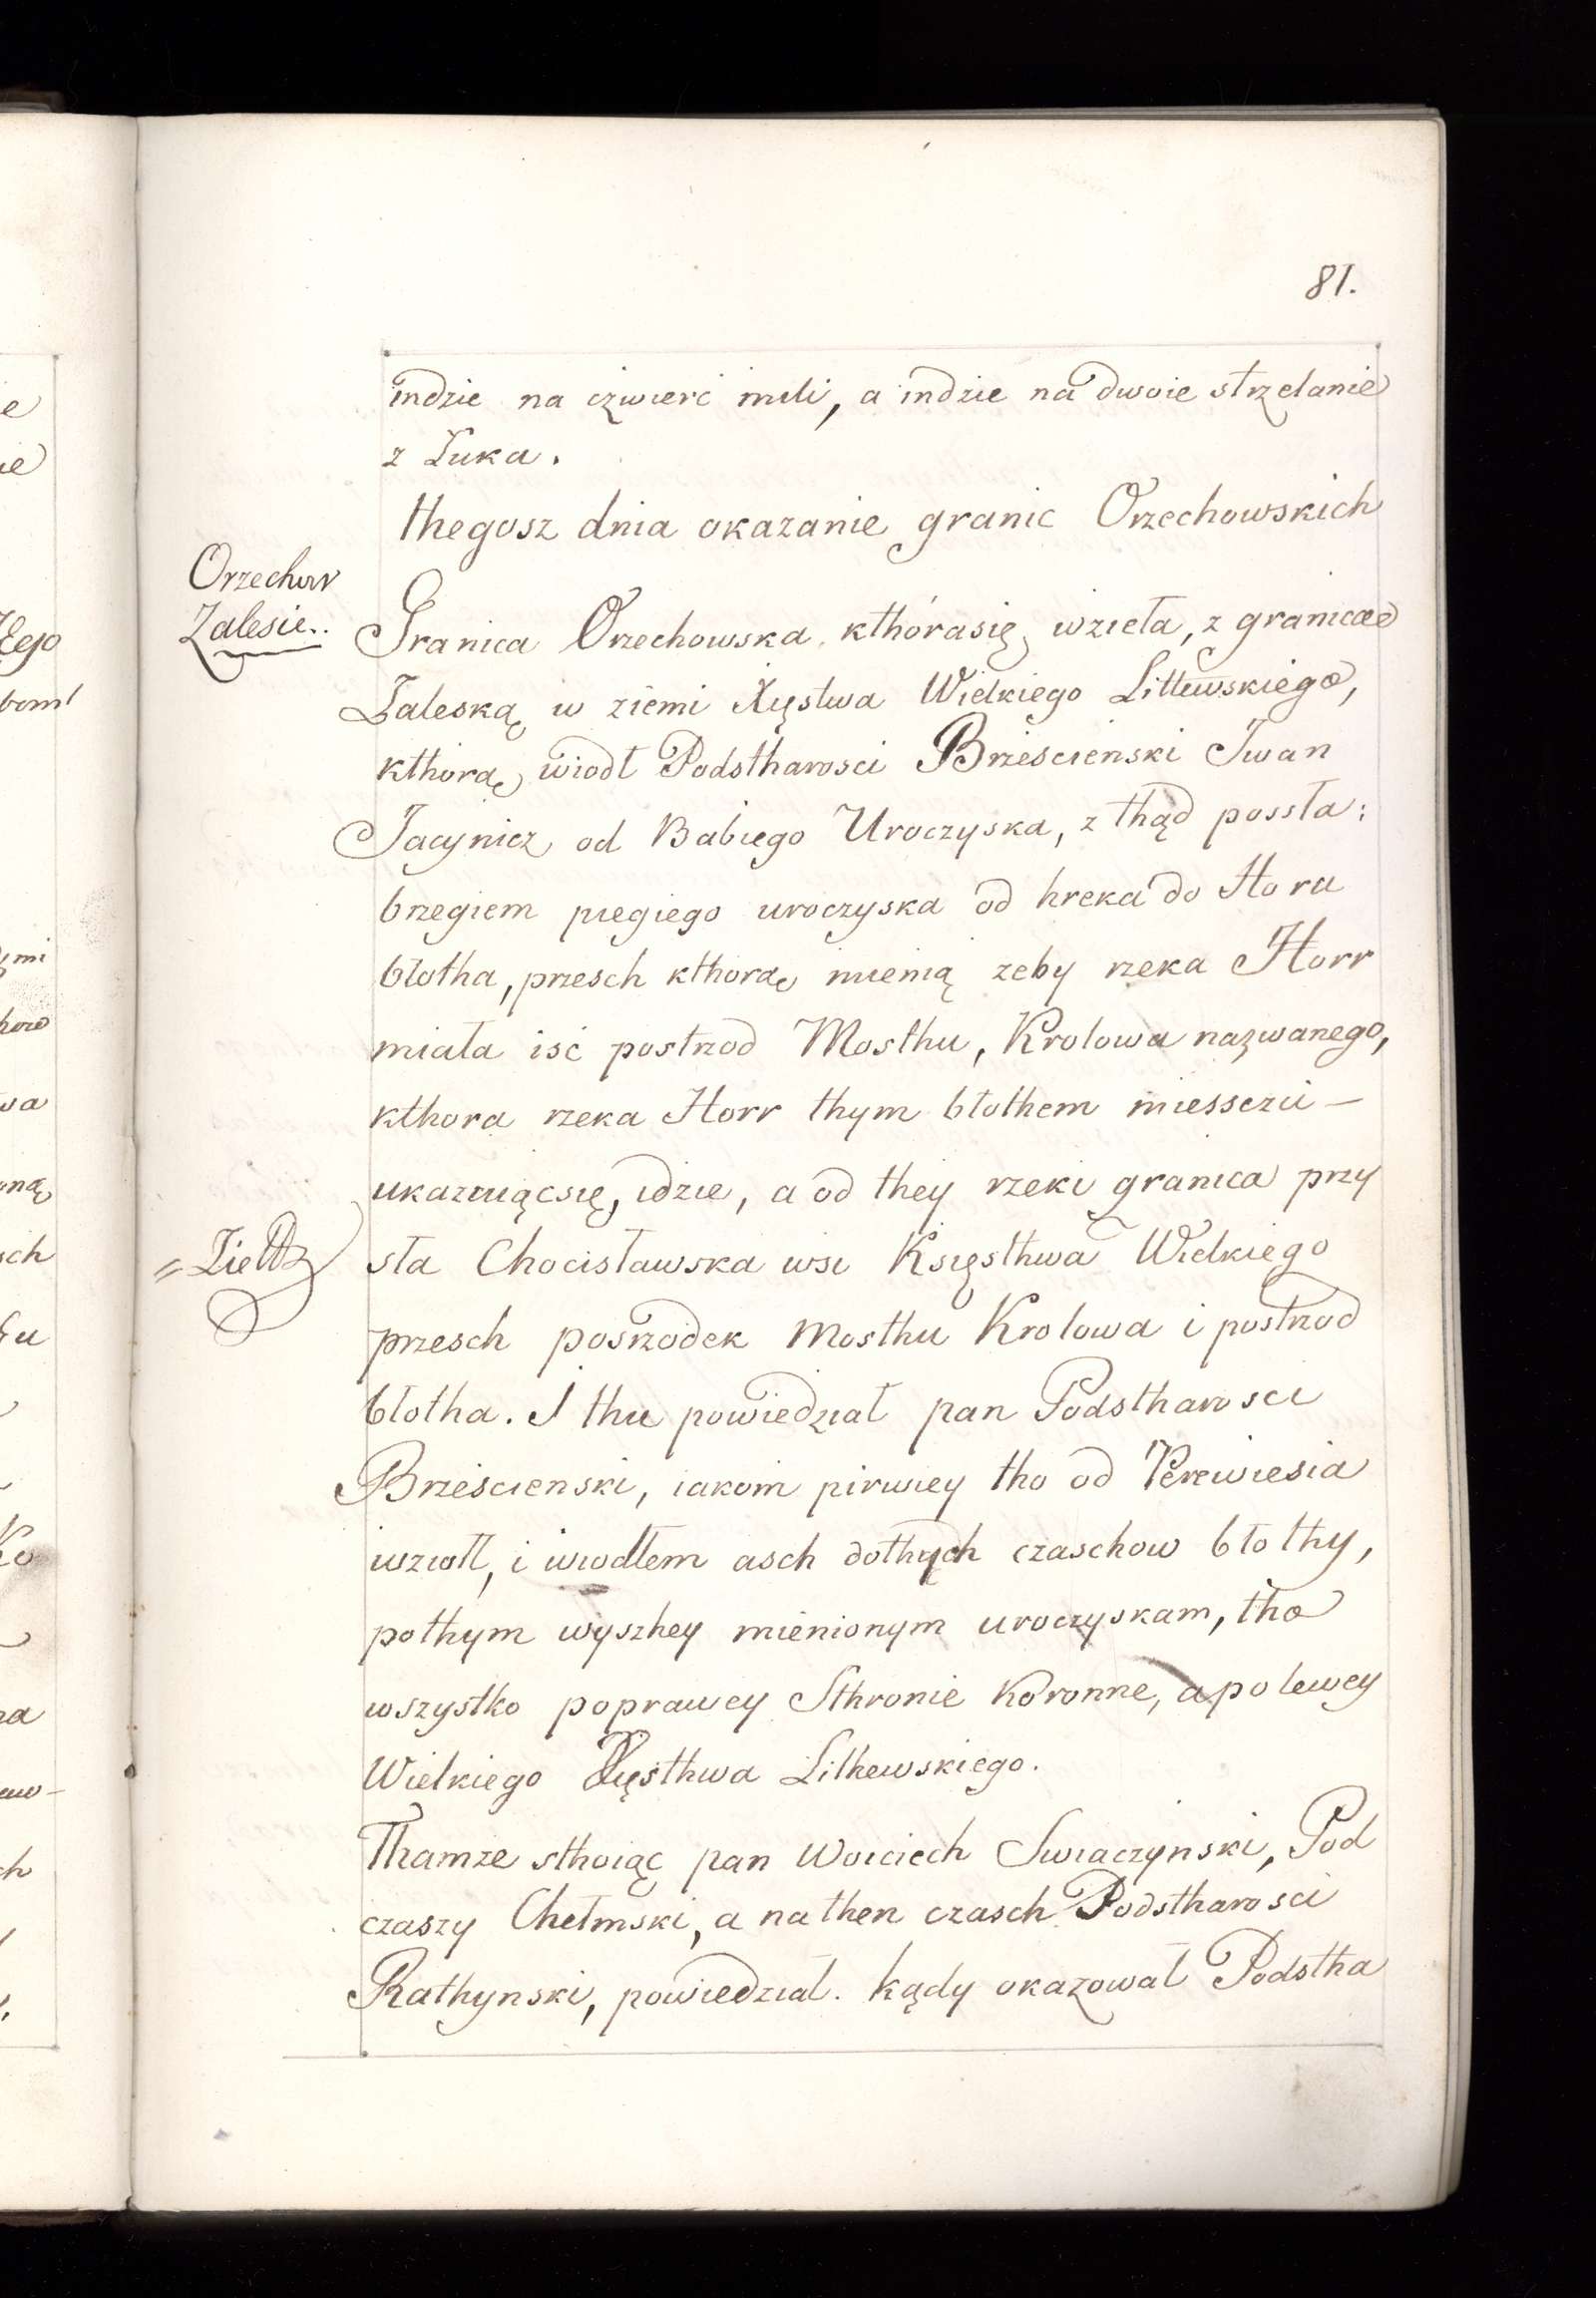 81.
indzie na czwierć mili, a indzie na dwoie strzelanie
z Łuka.
thegosz dnia okazanie granic Orzechowskich
Orzechow
Zalesie..
Granica Orzechowska kthórasię wzieła, z granicae
Zaleską w ziemi Xięstwa Wielkiego Littewskiego,
kthorą wiodł Podstharosci Brzescienski Iwan
Jacynicz od Babiego Uroczyska, z thąd possła:
brzegiem piegiego uroczyska od hreka do Horu
błotha, przesch kthorą mienią zeby rzeka Horr
miała isć postrzod Mosthu, Krolowa nazwanego,
kthora rzeka Horr thym błothem miessczii-
ukazuiącsię, idzie, a od they rzeki granica przy
=Zieltz
sła Chocisławska wsi Księsthwa Wielkiego
przesch posrzodek Mosthu Krolowa i postrzod
błotha. I thu powiedział pan Podstharosci
Brzescienski, iakom pirwiey tho od Perewiesia
wziołł, i wiodłem asch dothych czaschow błothy,
pothym wyszhey mienionym uroczyskam, tho
wszystko poprawey Sthronie koronne, a po lewey
Wielkiego Xięsthwa Lithewskiego.
Thamze sthoiąc pan Woiciech Swiaczynski, Pod
czaszy Chełmski, a na then czasch Podstharosci
Rathynski, powiedział. kądy okazował Podstha